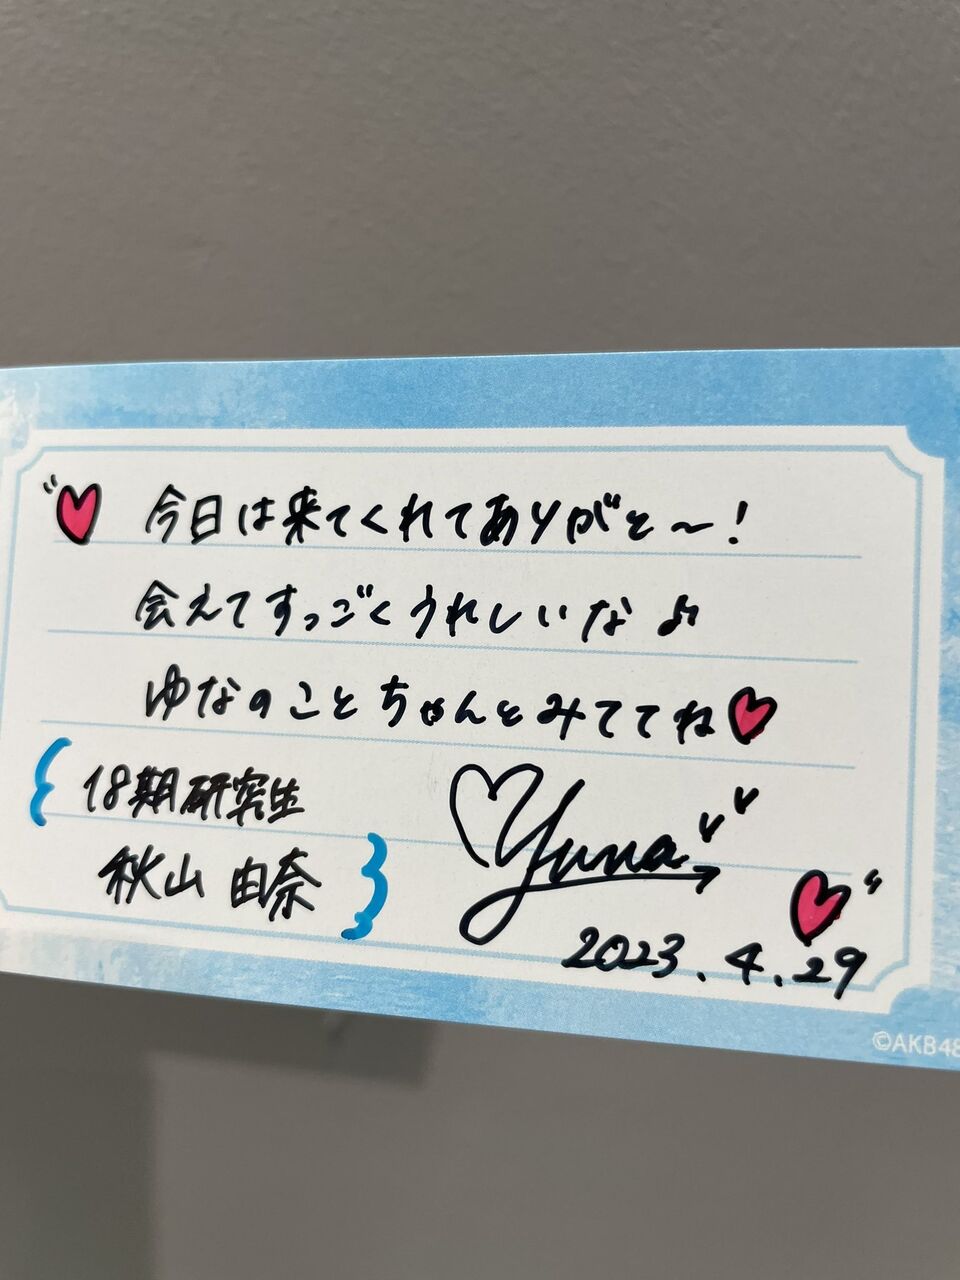 今日は来てくれてありがと〜!
会えてすっごくうれしいな♪
ゆなのことちゃんとみててね
18期研究生
秋山 由奈
Yuna
2023.4.29
©AKB48